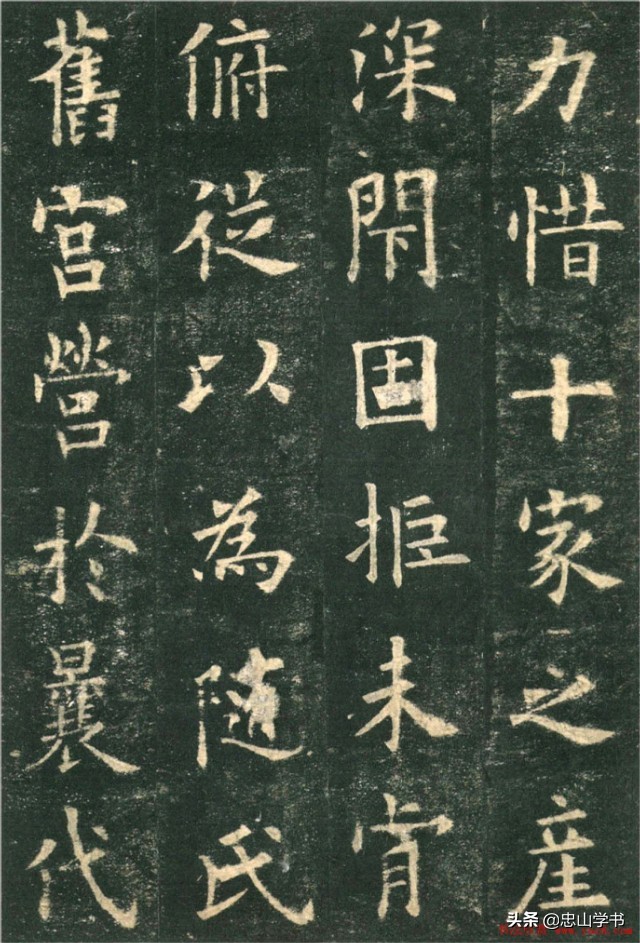 力惜十家之產
深閇固拒未肯
俯従以為隨氏
舊宮營於曩代
头条 @忠山学书